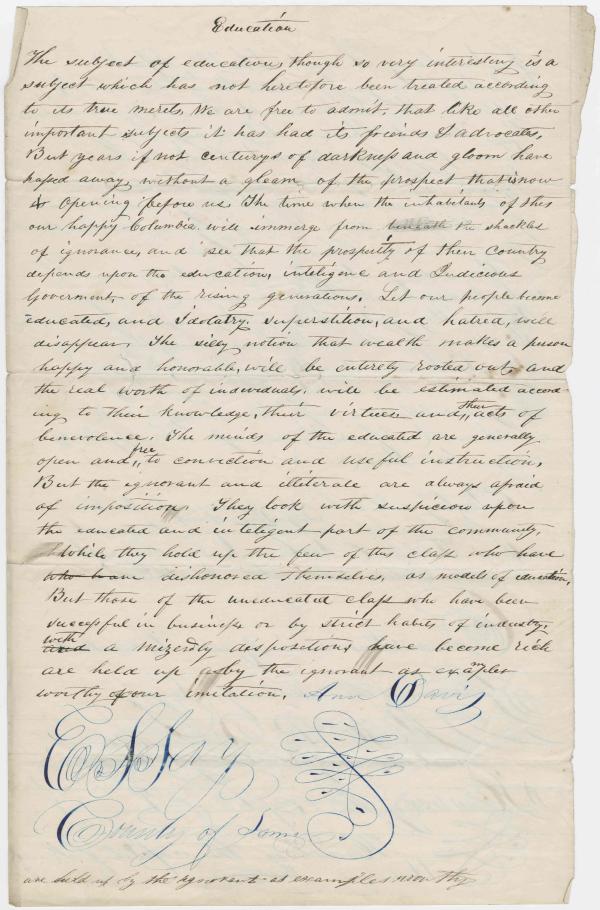 Education
The subject of education, though so very interesting is a
subject which has not heretofore been treated according
to its true merits, We are free to admit, that like all other
important subjects it has had its friends & advocates,
But years if not centurys of darkness and gloom have
passed away, without a gleam of the prospect that is now
opening before us. The time when the inhabitants of this
our happy Columbia will immerge from beneath the shackles
of ignorance, and see that the prosperity of their Country
depends upon the education, inteligence and Judicious
Goverment, of the rising generations. Let our people become
educated, and Idolatry, superstition, and hatred, will
disappear. The silly notion that wealth makes a person
happy and honorable, will be entirely rooted out, and
the real worth of individuals, will be estimated accord-
ing to their knowledge, their virtues and, their acts of
benevolence. The minds of the educated are generally
open and, free, to conviction and useful instruction,
But the ignorant and illiterate are always afraid
of imposition, They look with suspicion upon
the educated and inteligent part of the community,
While they hold up the few of this class who have
who have dishonored themselves, as models of education,
But those of the uneducated class who have been
successful in business or by strict habits of industry,
and with a mizerdly disposition, have become rich
are held up as by the ignorant as examples
worthy of our imitation. Ann Davis
Essay
County of
are held up by the ignorant as examples worthy